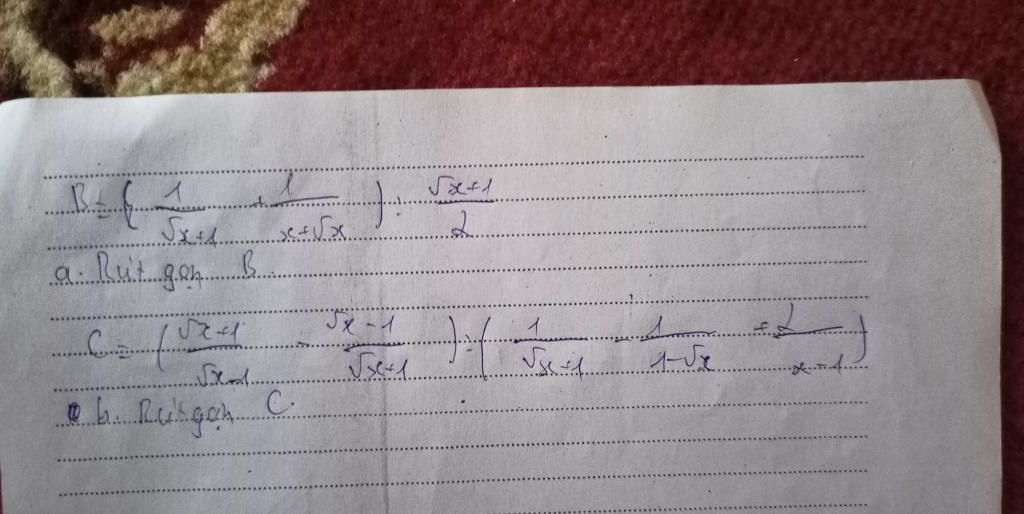 B = ( 1/(√x+1) + 1/(x+√x) ) : (√x+1)/2
a. Rút gọn B
C = ( (√x+1)/(√x-1) - (√x-1)/(√x+1) ) : ( 1/(√x+1) - 1/(1-√x) + 2/(x-1) )
b. Rút gọn C.